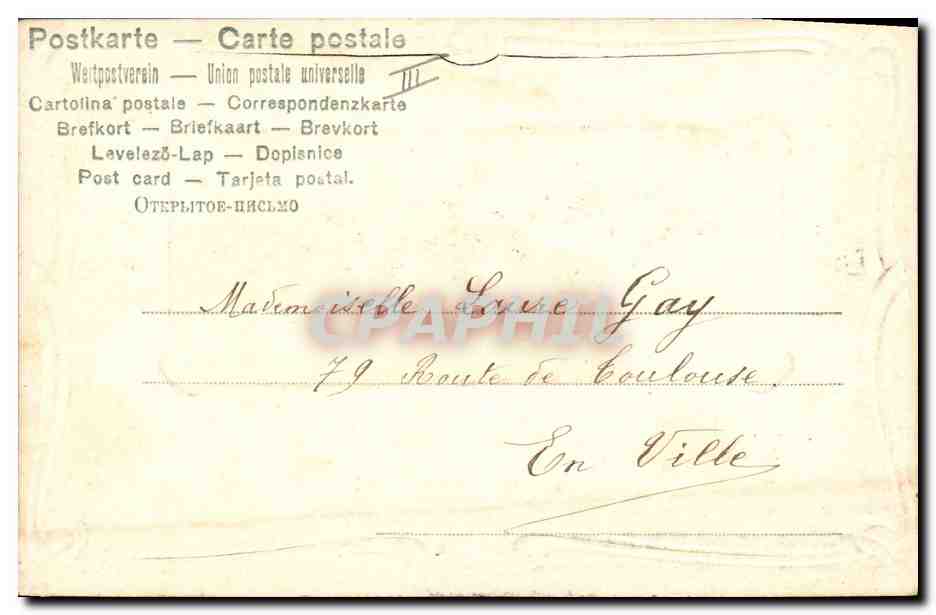 Postkarte — Carte postale
Weltpostverein — Union postale universelle
III
Cartolina postale — Correspondenzkarte
Brefkort — Briefkaart — Brevkort
Levelező-Lap — Dopisnice
Post card — Tarjeta postal.
Открытое-письмо
Mademoiselle Laure Gay
CPAPHIL
79 Route de Toulouse.
En Ville